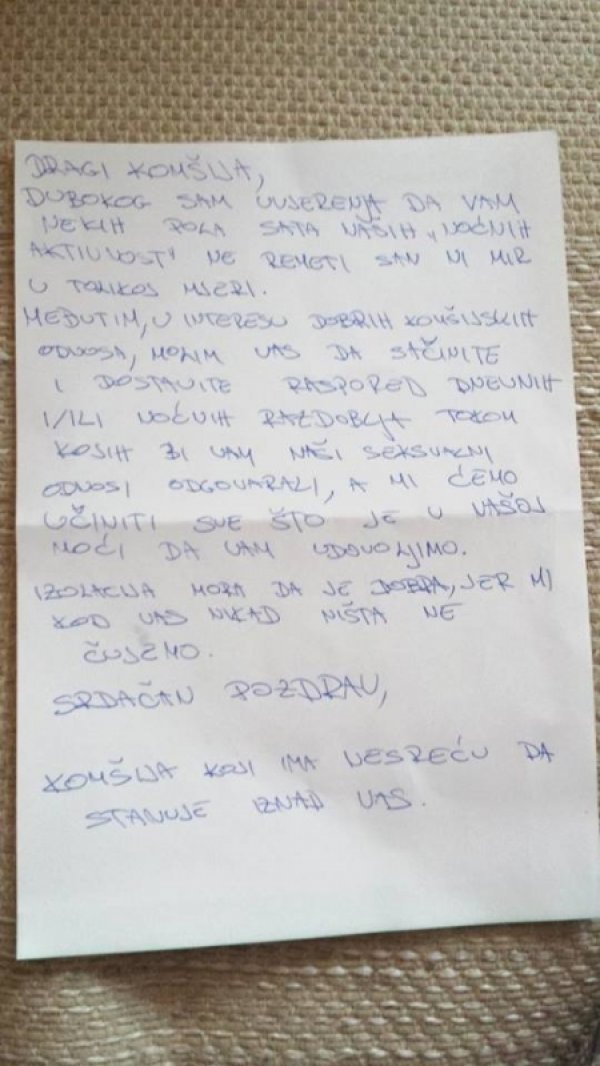 DRAGI KOMŠIJA,
DUBOKOG SAM UVJERENJA DA VAM
NEKIH POLA SATA NAŠIH „NOĆNIH
AKTIVNOSTI" NE REMETI SAN NI MIR
U TOLIKOJ MJERI.
MEĐUTIM, U INTERESU DOBRIH KOMŠIJSKIH
ODNOSA, MOLIM VAS DA SAČINITE
I DOSTAVITE RASPORED DNEVNIH
I/ILI NOĆNIH RAZDOBLJA TOKOM
KOJIH BI VAM NAŠI SEKSUALNI
ODNOSI ODGOVARALI, A MI ĆEMO
UČINITI SVE ŠTO JE U NAŠOJ
MOĆI DA VAM UDOVOLJIMO.
IZOLACIJA MORA DA JE DOBRA, JER MI
KOD VAS NIKAD NIŠTA NE
ČUJEMO.
SRDAČAN POZDRAV,
KOMŠIJA KOJI IMA NESREĆU DA
STANUJE IZNAD VAS.